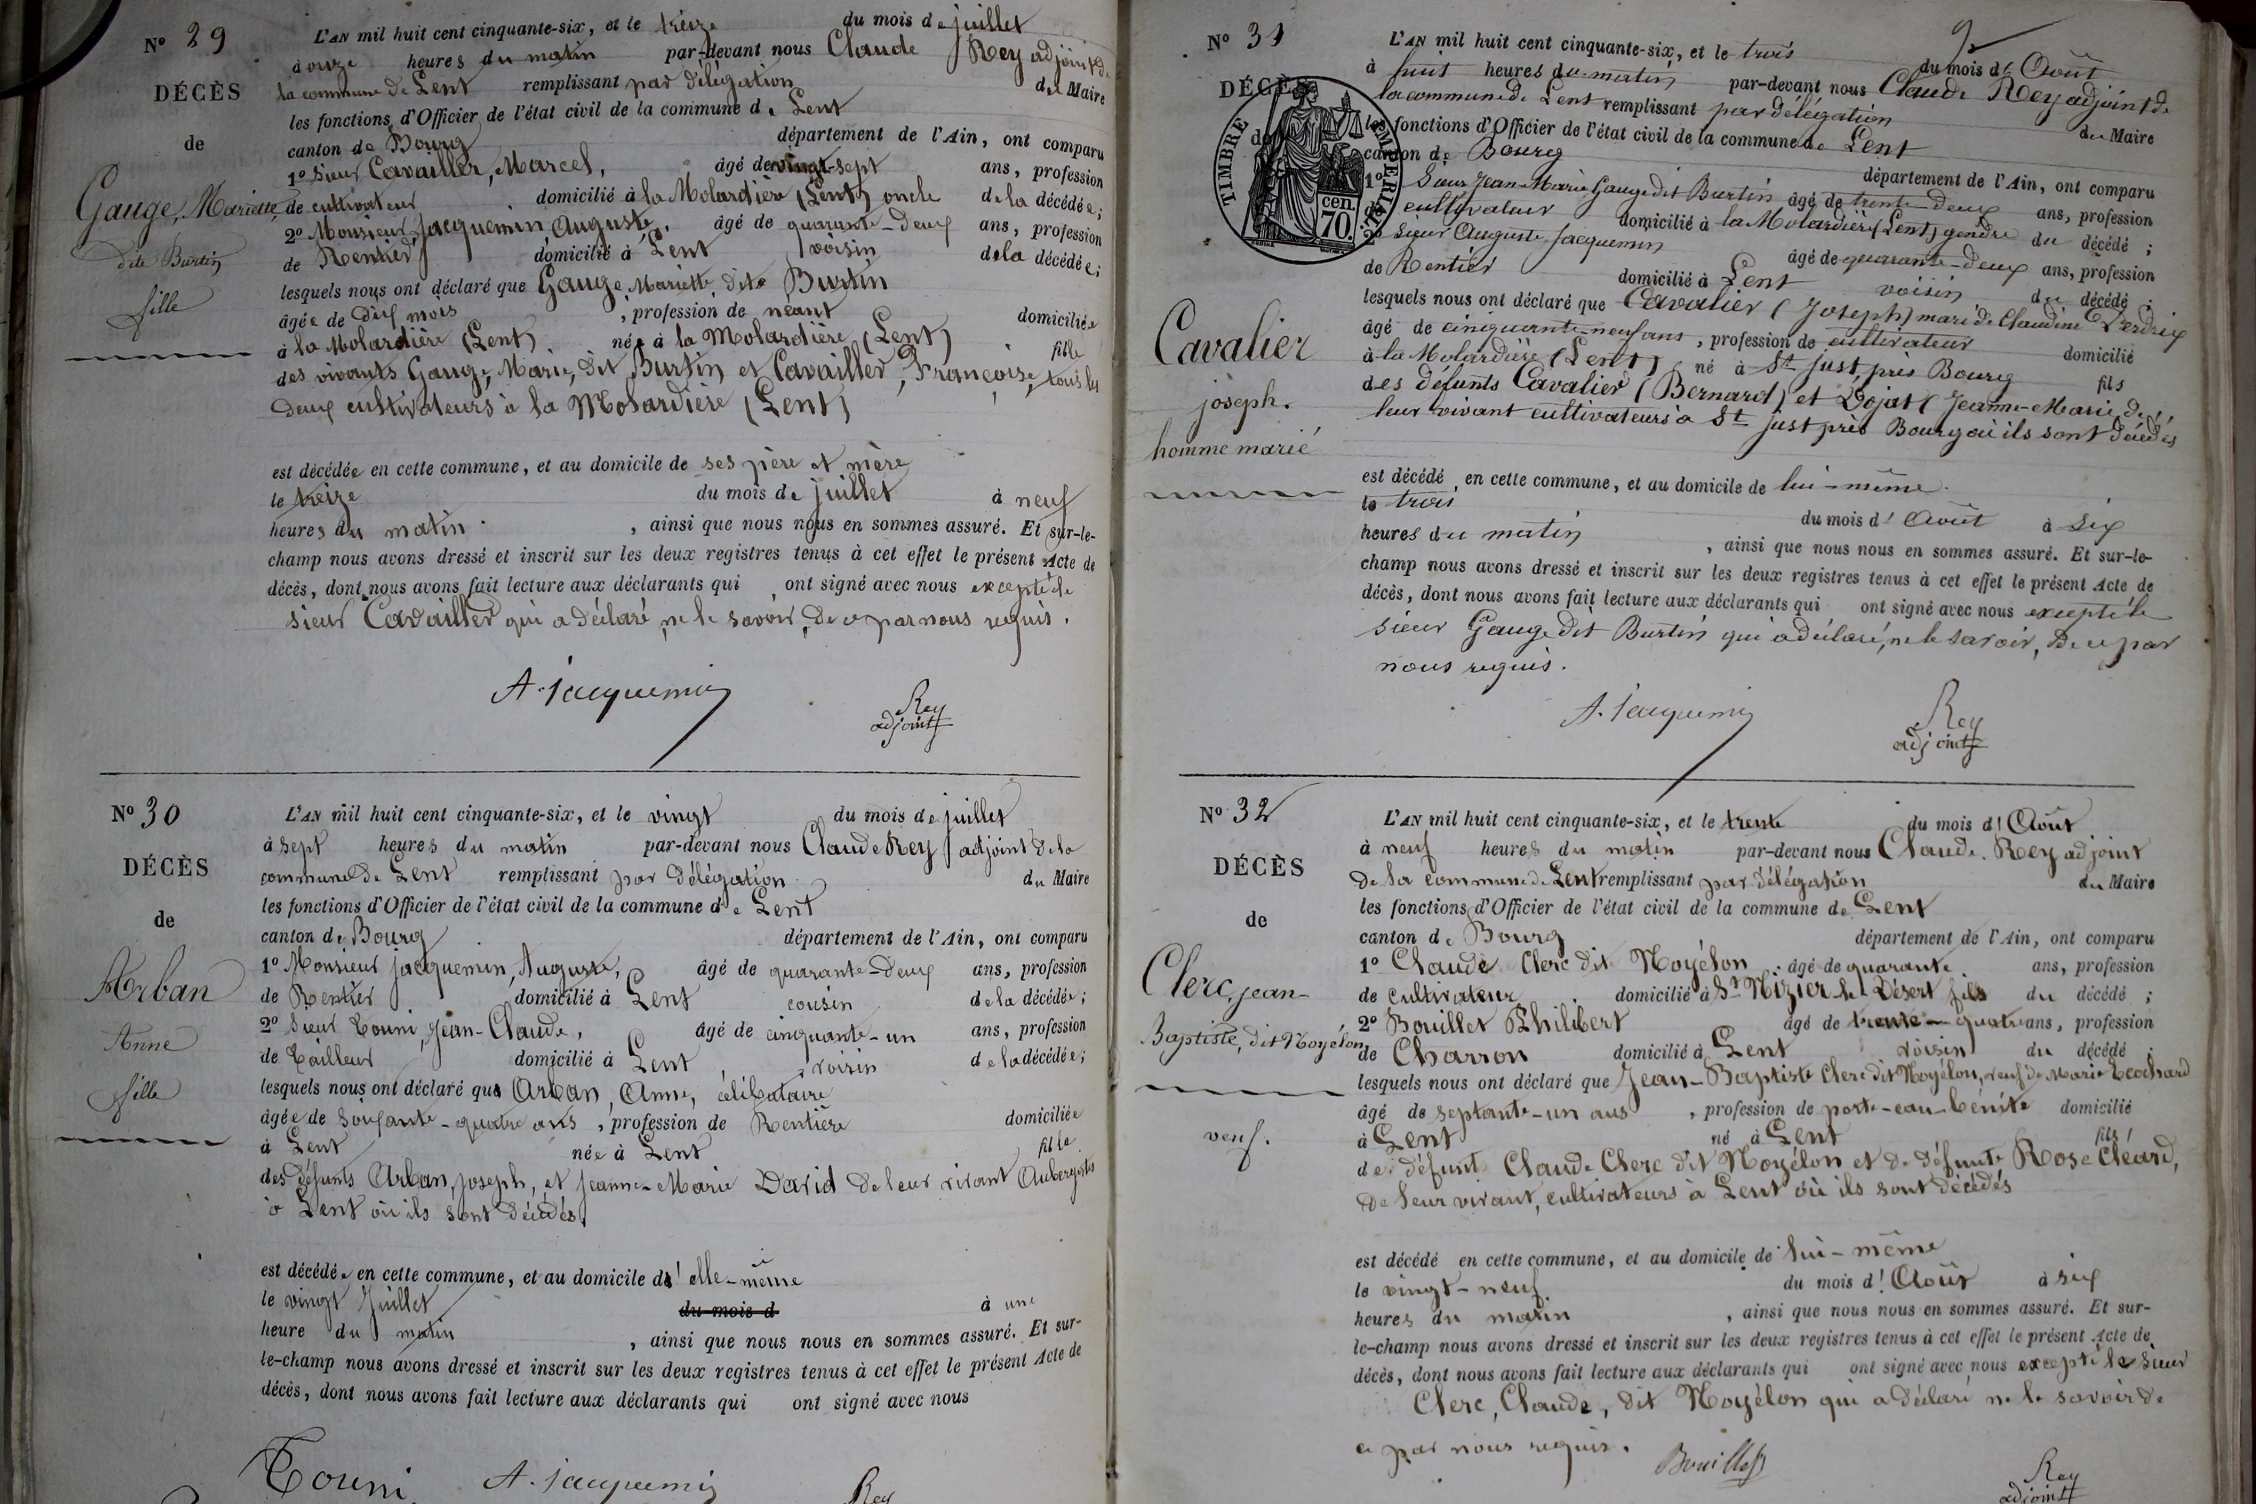 N° 29
DÉCÈS
de
Gauge, Mariette,
dite Burtin
fille
L'AN mil huit cent cinquante-six, et le treize du mois de juillet
à onze heures du matin par-devant nous Claude Rey adjoint de
la commune de Lent remplissant par délégation du Maire
les fonctions d'Officier de l'état civil de la commune de Lent
canton de Bourg département de l'Ain, ont comparu
1° Sieur Cavailler, Marcel, âgé de vingt-sept ans, profession
de cultivateur domicilié à la Molardière (Lent) oncle de la décédée;
2° Monsieur Jacquemin, Auguste, âgé de quarante-deux ans, profession
de Rentier domicilié à Lent voisin de la décédée;
lesquels nous ont déclaré que Gauge, Mariette, dite Burtin
âgée de dix mois, profession de néant domiciliée
à la Molardière (Lent) née à la Molardière (Lent) fille
des vivants Gauge, Marie, dit Burtin et Cavailler, Françoise, tous les
deux cultivateurs à la Molardière (Lent)
est décédée en cette commune, et au domicile de ses père et mère
le treize du mois de juillet à neuf
heures du matin, ainsi que nous nous en sommes assuré. Et sur-le-
champ nous avons dressé et inscrit sur les deux registres tenus à cet effet le présent Acte de
décès, dont nous avons fait lecture aux déclarants qui ont signé avec nous excepté le
sieur Cavailler qui a déclaré, ne le savoir, de ce par nous requis.
A. Jacquemin
Rey
adjoint
N° 30
DÉCÈS
de
Arban
Anne
fille
L'AN mil huit cent cinquante-six, et le vingt du mois de juillet
à sept heures du matin par-devant nous Claude Rey adjoint de la
commune de Lent remplissant par délégation du Maire
les fonctions d'Officier de l'état civil de la commune de Lent
canton de Bourg département de l'Ain, ont comparu
1° Monsieur Jacquemin, Auguste, âgé de quarante-deux ans, profession
de Rentier domicilié à Lent cousin de la décédée;
2° Sieur Touni, Jean-Claude, âgé de cinquante-un ans, profession
de Tailleur domicilié à Lent, voisin de la décédée;
lesquels nous ont déclaré que Arban, Anne, célibataire
âgée de soixante-quatre ans, profession de Rentière domiciliée
à Lent née à Lent fille
des défunts Arban, Joseph, et Jeanne-Marie David de leur vivant Aubergistes
à Lent où ils sont décédés.
est décédée en cette commune, et au domicile d'elle-même
le vingt Juillet du mois d à une
heure du matin, ainsi que nous nous en sommes assuré. Et sur-
le-champ nous avons dressé et inscrit sur les deux registres tenus à cet effet le présent Acte de
décès, dont nous avons fait lecture aux déclarants qui ont signé avec nous
Touni A. Jacquemin Rey
N° 31
DÉCÈS
de
TIMBRE IMPÉRIAL
70 cen.
Cavalier
joseph.
homme marié
L'AN mil huit cent cinquante-six, et le trois du mois d'Août
à huit heures du matin par-devant nous Claude Rey adjoint de
la commune de Lent remplissant par délégation du Maire
les fonctions d'Officier de l'état civil de la commune de Lent
canton de Bourg département de l'Ain, ont comparu
1° Sieur Jean-Marie Gauge dit Burtin âgé de trente-deux ans, profession
cultivateur domicilié à la Molardière (Lent) gendre du décédé;
2° sieur Auguste Jacquemin âgé de quarante-deux ans, profession
de Rentier domicilié à Lent voisin du décédé;
lesquels nous ont déclaré que Cavalier (Joseph) mari de Claudine Perdrix
âgé de cinquante-neuf ans, profession de cultivateur domicilié
à la Molardière (Lent) né à St just près Bourg fils
des défunts Cavalier (Bernard) et Dojat (Jeanne-Marie, de
leur vivant cultivateurs à St just près Bourg où ils sont décédés
est décédé en cette commune, et au domicile de lui-même.
le trois du mois d'Août à six
heures du matin, ainsi que nous nous en sommes assuré. Et sur-le-
champ nous avons dressé et inscrit sur les deux registres tenus à cet effet le présent Acte de
décès, dont nous avons fait lecture aux déclarants qui ont signé avec nous excepté le
sieur Gauge dit Burtin qui a déclaré, ne le savoir, de ce par
nous requis.
A. Jacquemin
Rey
adjoint
N° 32
DÉCÈS
de
Clerc, jean-
Baptiste, dit Noyélon
veuf.
L'AN mil huit cent cinquante-six, et le trente du mois d'Août
à neuf heures du matin par-devant nous Claude Rey adjoint
de la commune de Lent remplissant par délégation du Maire
les fonctions d'Officier de l'état civil de la commune de Lent
canton de Bourg département de l'Ain, ont comparu
1° Claude Clerc dit Noyélon, âgé de quarante ans, profession
de cultivateur domicilié à St Nizier le Désert fils du décédé;
2° Bouillet Philibert âgé de trente-quatre ans, profession
de Charron domicilié à Lent voisin du décédé;
lesquels nous ont déclaré que Jean-Baptiste Clerc dit Noyélon, veuf de Marie
âgé de septante-un ans, profession de porte-eau-bénite domicilié
à Lent né à Lent fils
de défunt Claude Clerc dit Noyélon et de défunte Rose Cléard,
de leur vivant, cultivateurs à Lent où ils sont décédés
est décédé en cette commune, et au domicile de lui-même
le vingt-neuf du mois d'Août à six
heures du matin, ainsi que nous nous en sommes assuré. Et sur-
le-champ nous avons dressé et inscrit sur les deux registres tenus à cet effet le présent Acte de
décès, dont nous avons fait lecture aux déclarants qui ont signé avec nous excepté le sieur
Clerc, Claude, dit Noyélon qui a déclaré ne le savoir de
ce par nous requis.
Bouillet
Rey
adjoint